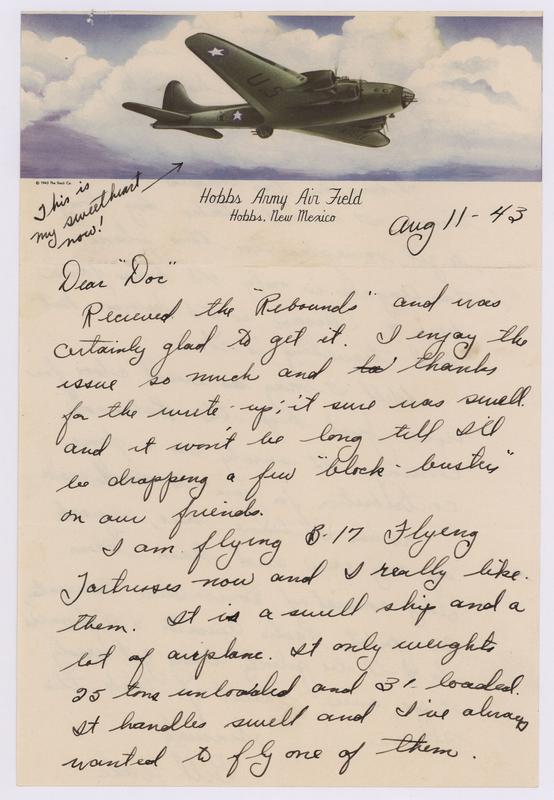 U.S
© 1943 The Stack Co.
This is
my sweetheart
now!
Hobbs Army Air Field
Hobbs, New Mexico
Aug 11 - 43
Dear "Doc"
Recieved the "Rebounds" and was
certainly glad to get it. I enjoy the
issue so much and thanks
for the write-up; it sure was swell.
and it won't be long till I'll
be drapping a few "block-busters"
on our friends.
I am flying B-17 Flyeng
Fortresses now and I really like
them. It is a swell ship and a
lot of airplane. It only weights
25 tons unloaded and 31 loaded.
It handles swell and I've always
wanted to fly one of them.